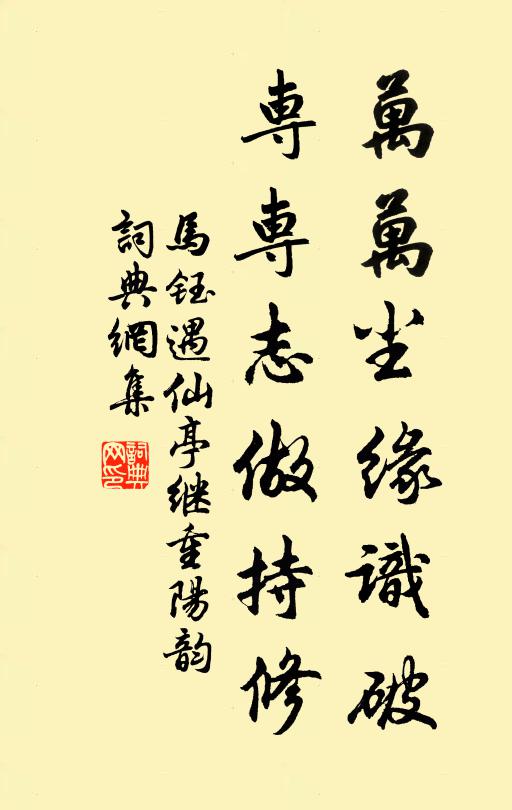 萬萬尘缘識破
専専志做持修
馬鈺遇仙亭继重陽韵
詞典網集
詞典網印